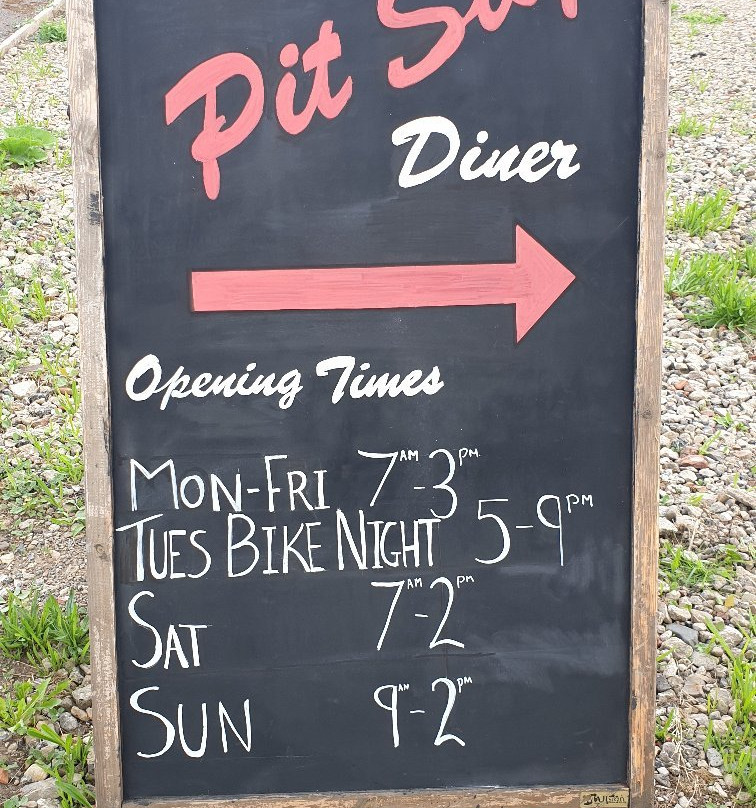 Pit Stop
Diner
Opening Times
MON-FRI 7AM-3PM
TUES BIKE NIGHT 5-9PM
SAT 7AM-2PM
SUN 9AM-2PM